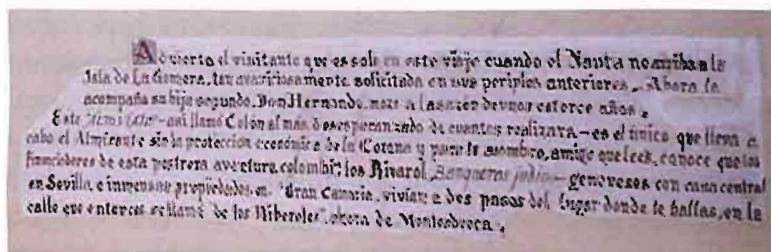 Advierta el visitante que es solo en este viaje cuando el Nauta no arriba a la
Isla de La Gomera, tan avariciosamente solicitada en sus periplos anteriores. Ahora le
acompaña su hijo segundo, Don Hernando, mozo a la sazón de unos catorce años.
Este "Alto Viaje" - así llamó Colón al más desesperanzado de cuantos realizara - es el único que lleva a
cabo el Almirante sin la protección económica de la Corona y para tu asombro, amigo que lees, conoce que los
financiadores de esta postrera aventura colombina: los Rivarol, Banqueros judío - genoveses con casa central
en Sevilla e inmensas propiedades en Gran Canaria, vivían a dos pasos del lugar donde te hallas, en la
calle que entonces se llamó "de los Riberoles", ahora de Montesdeoca.